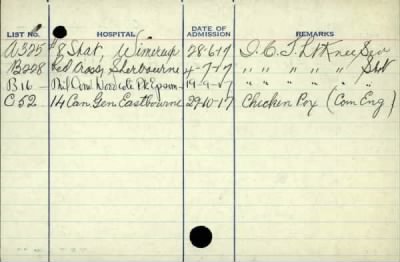 LIST NO. HOSPITAL DATE OF ADMISSION REMARKS
A325 #8 Stat, Wimereux 28-6-17 I.C.T. Lt Knee Sev
B228 Red Cross Sherbourne 4-7-17 " " " " " Shot
B16 - Mil Con Woodcote Pk Epsom -9-17 " " " " "
C52 14 Can Gen Eastbourne 29-10-17 Chicken Pox (Com Eng)